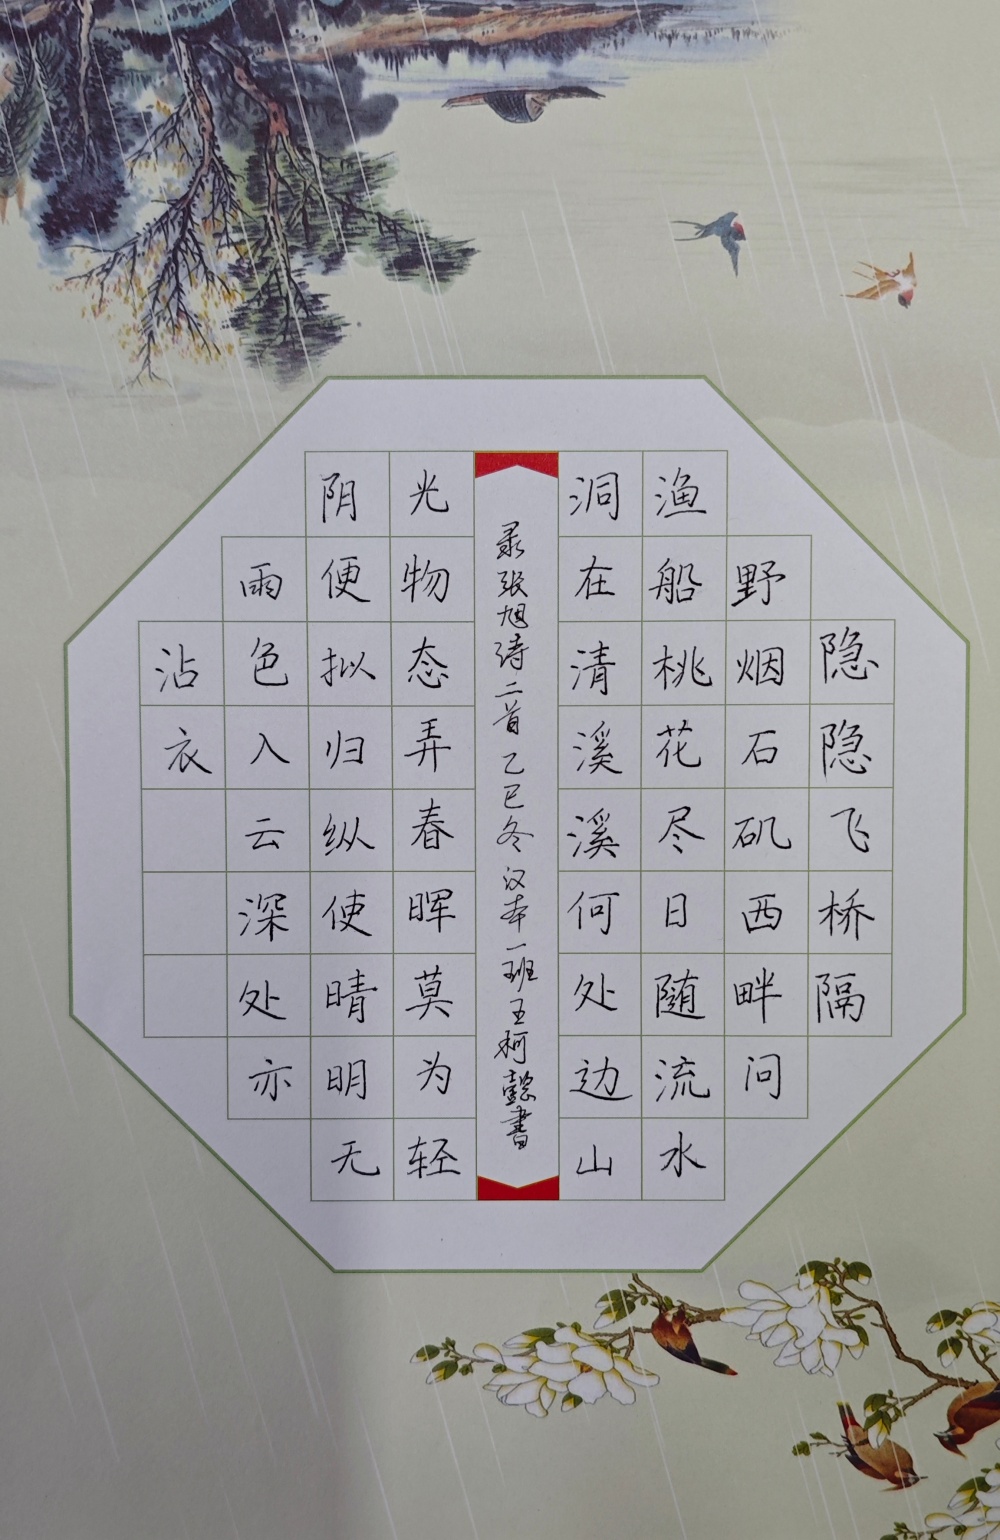 隐隐飞桥隔
野烟石矶西畔问
渔船桃花尽日随流水
洞在清溪溪何处边山
录张旭诗二首乙巳冬汉本一班王柯懿書
光物态弄春晖莫为轻
阴便拟归纵使晴明无
雨色入云深处亦
沾衣